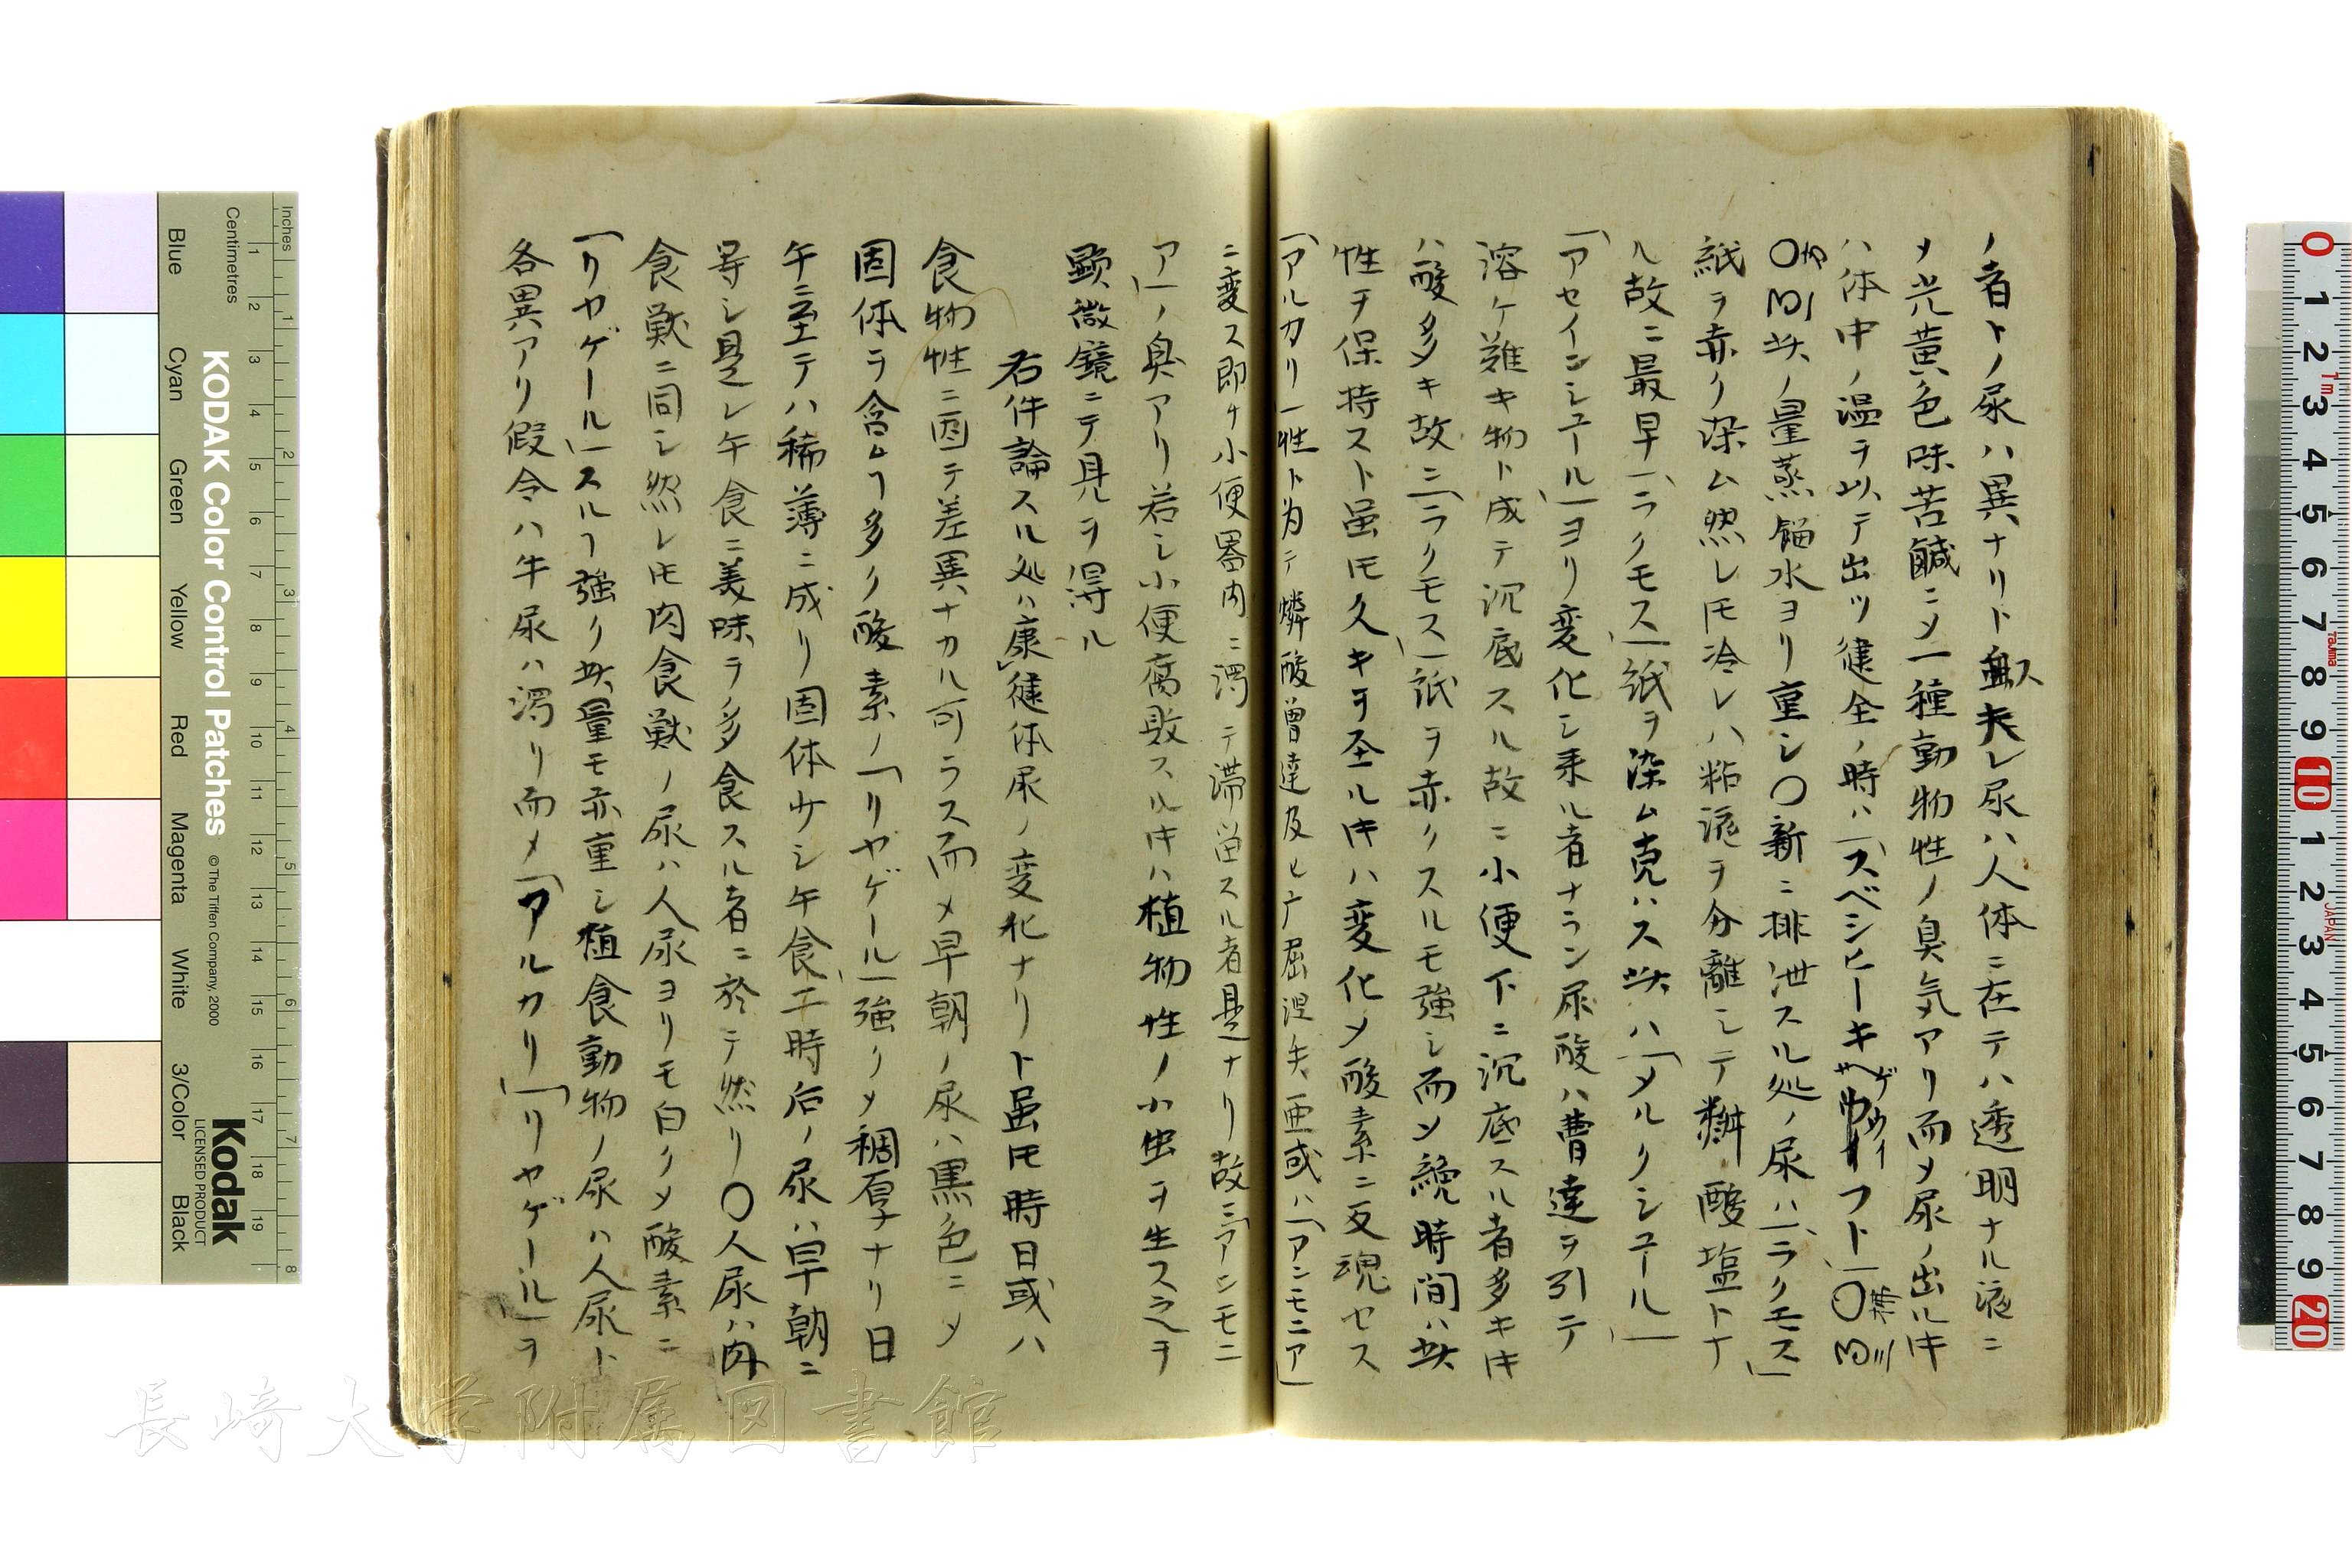 ノ者トノ尿ハ異ナリトス夫レ尿ハ人体ニ在テハ透明ナル液ニ
メ光黄色味苦鹹ニメ一種動物性ノ臭気アリ而メ尿ノ出ルキ
ハ体中ノ温ヲ以テ出ツ健全ノ時ハ「スベシヒーキゲウイフト」〇
〇其ノ量蒸餾水ヨリ重シ〇新ニ排泄スル処ノ尿ハ「ラクモス」
紙ヲ赤ク染ム然レ𪜈冷レハ粘液ヲ分離シテ燐酸塩トナ
ル故ニ最早「ラクモス」紙ヲ染ム克ハス其ハ「メルクシユール」
「アセインシユール」ヨリ変化シ来ル者ナラン尿酸ハ曹達ヲ引テ
溶ケ難キ物ト成テ沉底スル故ニ小便下ニ沉底スル者多キキ
ハ酸多キ故ニ「ラクモス」紙ヲ赤クスルモ強シ而メ纔時間ハ其
性ヲ保持スト虽𪜈久キヲ至ルキハ変化メ酸素ニ反魂セス
「アルカリ」性ト為テ燐酸曽達及ヒ广屈涅失亜或ハ「アンモニア」
ニ変ス即チ小便器内ニ濁テ滞畄スル者是ナリ故ニ「アンモニ
ア」ノ臭アリ若シ小便腐敗スルキハ植物性ノ小虫ヲ生ス之ヲ
顕微鏡ニテ見ヲ得ル
右件論スル処ハ康健体尿ノ変化ナリト虽𪜈時日或ハ
食物性ニ因テ差異ナカル可ラス而メ早朝ノ尿ハ黒色ニメ
固体ヲ含ムヿ多ク酸素ノ「リヤゲール」強クメ稠厚ナリ日
午ニ至テハ稀薄ニ成リ固体少シ午食二時后ノ尿ハ早朝ニ
等シ是レ午食ニ美味ヲ多食スル者ニ於テ然リ〇人尿ハ肉
食獣ニ同シ然レ𪜈肉食獣ノ尿ハ人尿ヨリモ白クメ酸素ニ
「リヤゲール」スルヿ強ク其量モ亦重シ植食動物ノ尿ハ人尿ト
各異アリ假令ハ牛尿ハ濁リ而メ「アルカリ」「リヤゲール」ヲ
長崎大学附属図書館
KODAK Color Control Patches
© The Tiffen Company, 2000
Kodak
LICENSED PRODUCT
Inches
Centimetres
Blue
Cyan
Green
Yellow
Red
Magenta
White
3/Color
Black